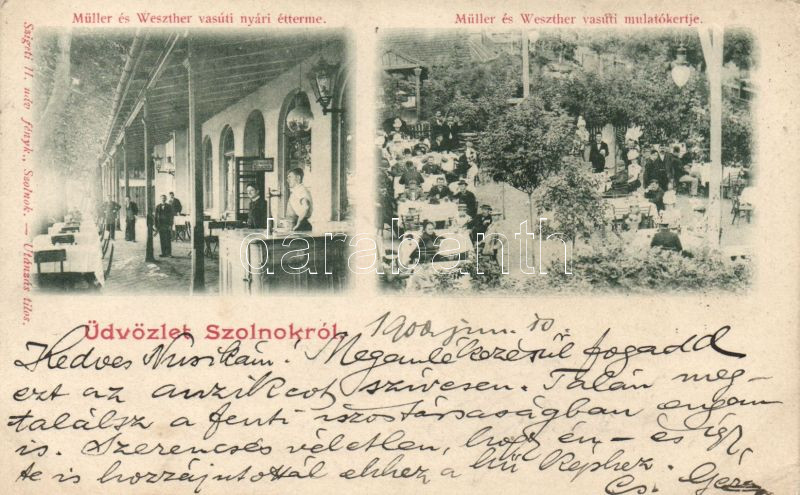 Müller és Weszther vasúti nyári étterme.
Müller és Weszther vasúti mulatókertje.
Szigeti H. udv. fényk., Szolnok. — Utánzás tilos.
darabanth
Üdvözlet Szolnokról.
1900 jun. 10.
Kedves Nusikám! Megemlékezésül fogadd
ezt az anzikcot szívesen. Talán meg-
találsz a fenti iszostársaságban engem
is. Szerencsés véletlen, hogy én – és így
te is hozzájutottál ehhez a hű képhez.
Cs. Géza